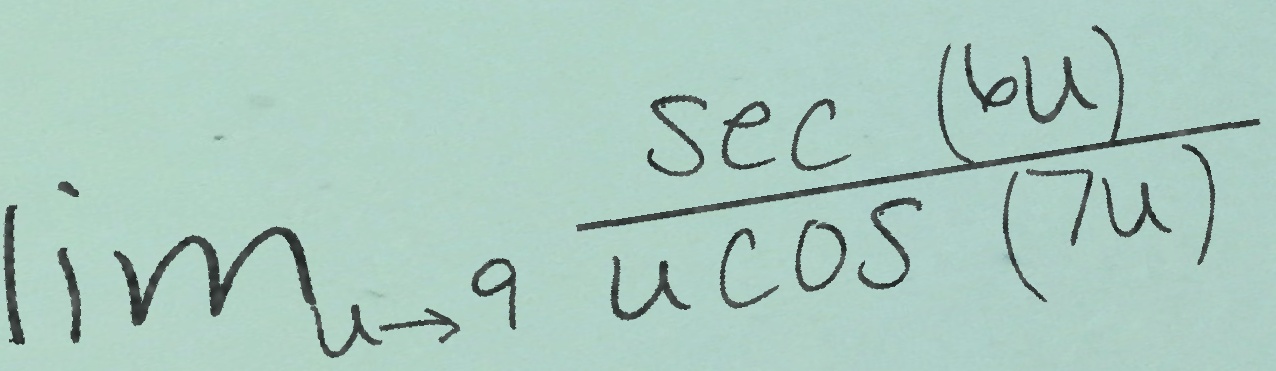 lim_{u→9} \frac{sec (6u)}{u cos (7u)}